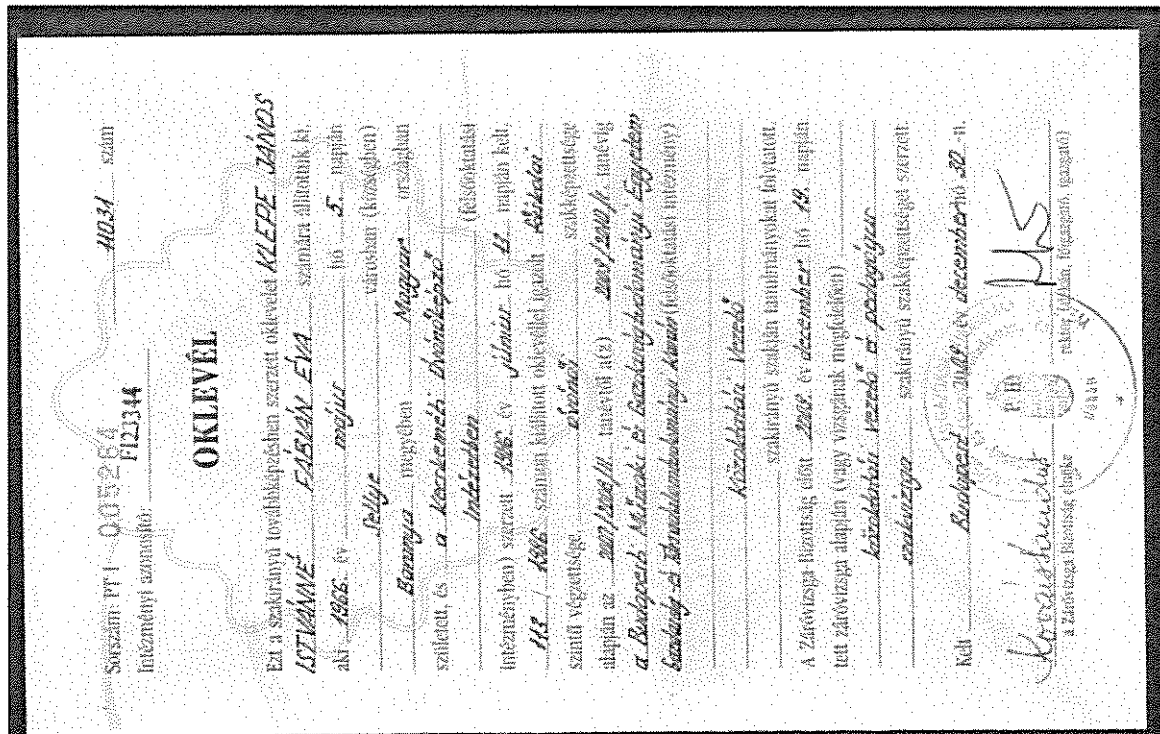 Sorszám: PT I 005284 11031 szám
Intézményi azonosító: FI23344
OKLEVÉL
Ezt a szakirányú továbbképzésben szerzett oklevelet KLEPE JÁNOS
ISTVÁNNÉ FÁBIÁN ÉVA számára állítottuk ki,
aki 1966. év május hó 5. napján
Sellye városban (községben)
Baranya megyében Magyar országban
született, és a Kecskeméti Óvónőképző
Intézetben (felsőoktatási
intézményben) szerzett 1986. év június hó 12. napján kelt,
113 / 1986. számon kiállított oklevéllel igazolt főiskolai
szintű végzettsége óvónő szakképzettsége
alapján az 2007/2008/II. tanévtől a(z) 2009/2010/I. tanévig
a Budapesti Műszaki és Gazdaságtudományi Egyetem
Gazdaság- és Társadalomtudományi Karán (felsőoktatási intézmény)
Közoktatási Vezető
szakirányú szakján tanulmányokat folytatott.
A Záróvizsga-Bizottság előtt 2009. év december hó 19. napján
tett záróvizsga alapján (vagy vizsgának megfelelően)
közoktatási vezető és pedagógus
szakvizsga szakirányú szakképzettséget szerzett.
Kelt Budapest, 2009. év december hó 20.-n.
P.H.
a Záróvizsga-Bizottság elnöke rektor (dékán, főigazgató, igazgató)